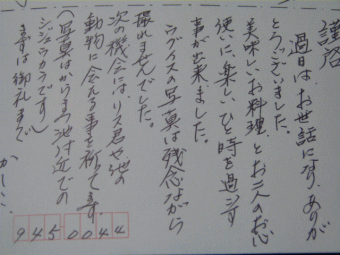 謹啓
過日は、お世話になり、ありが
とうございました。
美味しいお料理とお二人のお心
使いに、楽しいひと時を過ごす
事が出来ました。
ウグイスの写真は残念ながら
撮れませんでした。
次の機会には、リス君や他の
動物に会える事を祈ってます。
(写真はからまつ池付近での
シジュウカラです)
まずは御礼まで
かしこ
9450044